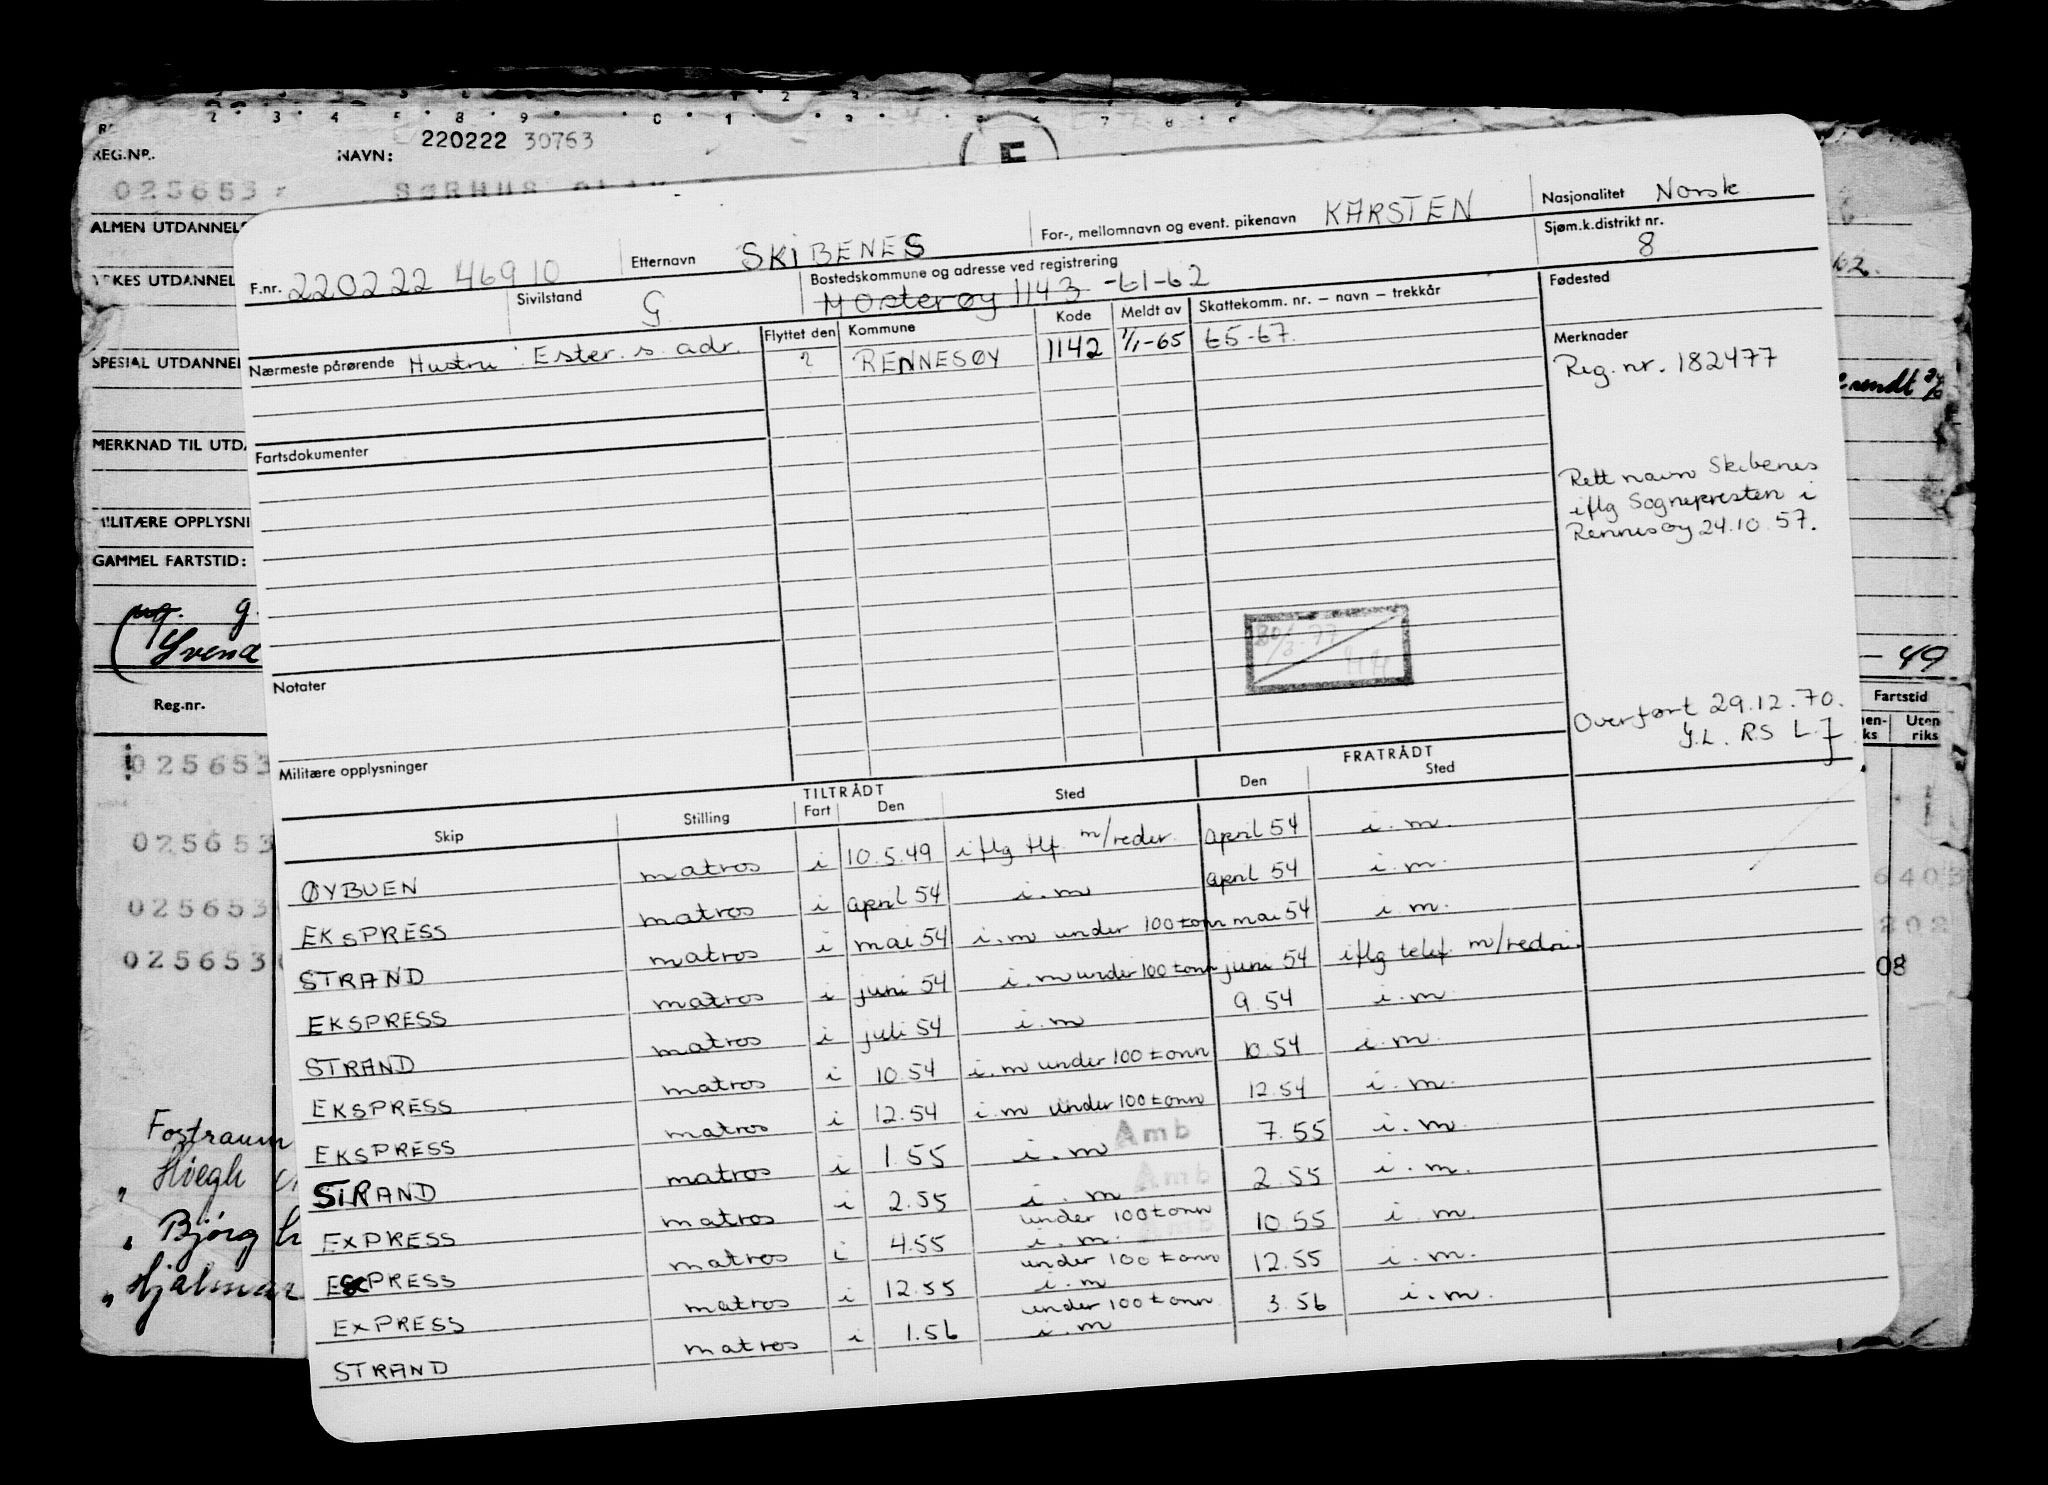 REG.NR. NAVN: 220222 30763
025653
ALMEN UTDANNELS
YRKES UTDANNEL
SPESIAL UTDANNEL
MERKNAD TIL UTDA
MILITÆRE OPPLYSNI
GAMMEL FARTSTID:
Svend
- 49
Reg.nr.
Fartstid
Uten riks
025653
025653
025653
025653
6403
202
08
Fostraum
" Høegh
" Bjørg
" Hjalmar
F.nr. 220222 46910 Etternavn SKIBENES For-, mellomnavn og event. pikenavn KARSTEN Nasjonalitet Norsk
Sivilstand G Bostedskommune og adresse ved registrering Mosterøy 1143 -61-62 Sjøm.k.distrikt nr. 8
Nærmeste pårørende Hustru: Ester. s. adr. Flyttet den Kommune Kode Meldt av Skattekomm. nr. – navn – trekkår Fødested
? RENNESØY 1142 1/1-65 65-67. Merknader
Reg.nr. 182477
Fartsdokumenter
Rett navn Skibenes
iflg Sognepresten i
Rennesøy 24.10.57.
30/3-77
HH
Notater
Overført 29.12.70.
Militære opplysninger
TILTRÅDT FRATRÅDT
Skip Stilling Fart Den Sted Den Sted
ØYBUEN matros i 10.5.49 iflg tlf. m/reder. april 54 i.m.
EKSPRESS matros i april 54 i.m april 54 i.m.
STRAND matros i mai 54 i.m under 100 tonn mai 54 i.m.
EKSPRESS matros i juni 54 i.m under 100 tonn juni 54 iflg telef. m/rederi.
STRAND matros i juli 54 i.m 9.54 i.m.
EKSPRESS matros i 10.54 i.m under 100 tonn 10.54 i.m.
EKSPRESS matros i 12.54 i.m under 100 tonn 12.54 i.m.
STRAND matros i 1.55 i.m Amb 7.55 i.m.
EXPRESS matros i 2.55 i.m Amb under 100 tonn 2.55 i.m.
EXPRESS matros i 4.55 i.m. Amb under 100 tonn 10.55 i.m.
EXPRESS matros i 12.55 i.m under 100 tonn 12.55 i.m.
STRAND matros i 1.56 i.m 3.56 i.m.